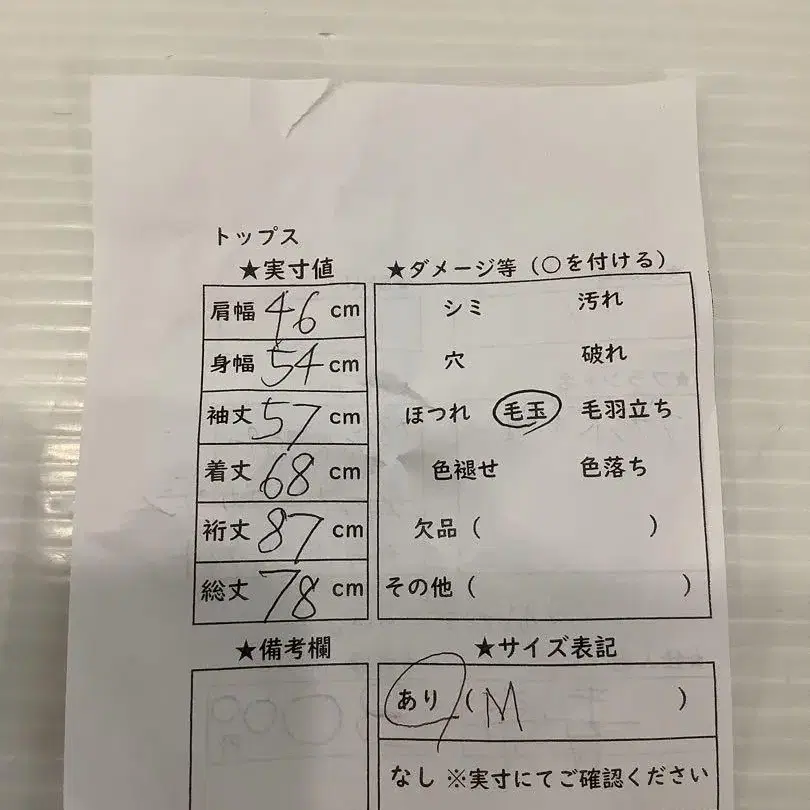 トップス
★実寸値
肩幅 46 cm
身幅 54 cm
袖丈 57 cm
着丈 68 cm
裄丈 87 cm
総丈 78 cm
★ダメージ等（○を付ける）
シミ 汚れ
穴 破れ
ほつれ 毛玉 毛羽立ち
色褪せ 色落ち
欠品（ ）
その他（ ）
★備考欄
★サイズ表記
あり（M ）
なし ※実寸にてご確認ください